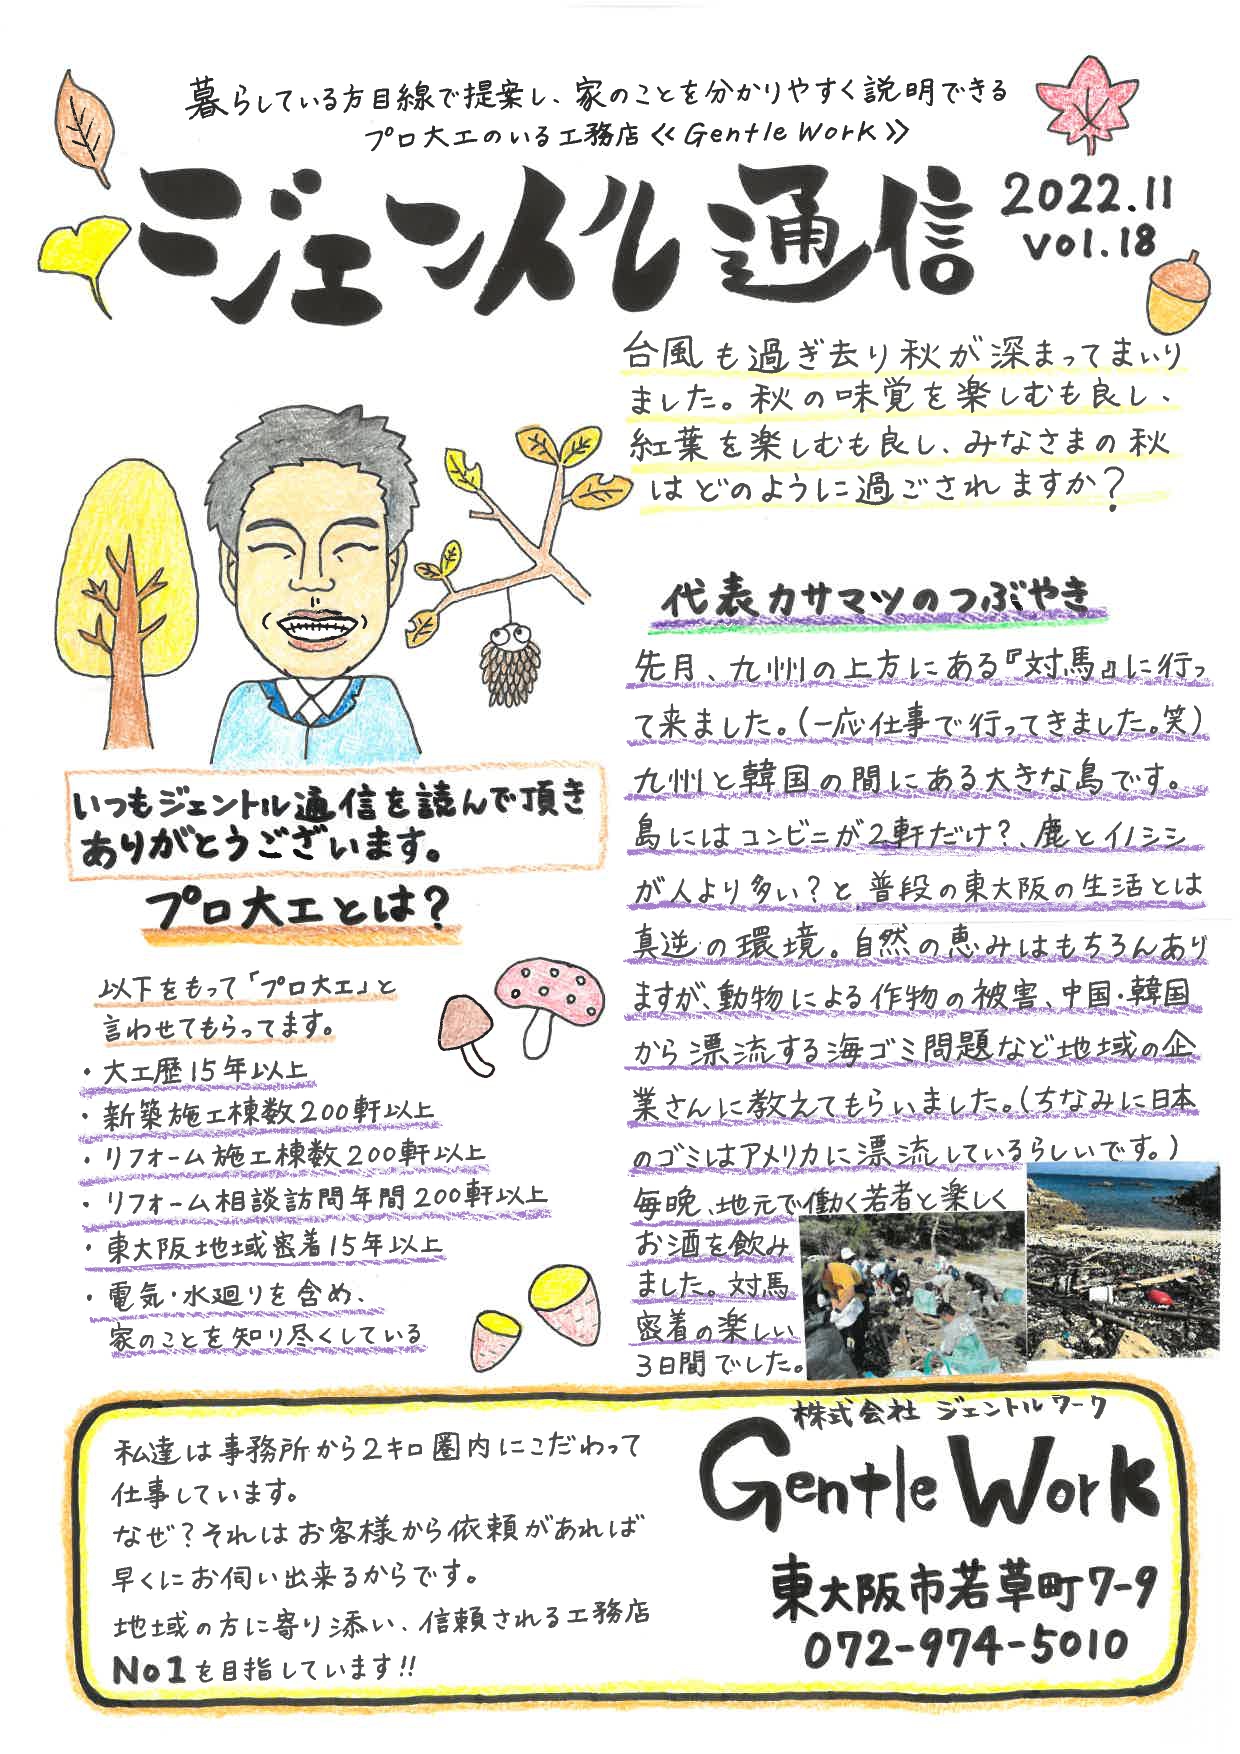 暮らしている方目線で提案し、家のことを分かりやすく説明できる
プロ大工のいる工務店≪Gentle Work≫
ジェントル通信
2022.11
vol.18
台風も過ぎ去り秋が深まってまいり
ました。秋の味覚を楽しむも良し、
紅葉を楽しむも良し、みなさまの秋
はどのように過ごされますか?
いつもジェントル通信を読んで頂き
ありがとうございます。
プロ大工とは?
以下をもって「プロ大工」と
言わせてもらってます。
・大工歴15年以上
・新築施工棟数200軒以上
・リフォーム施工棟数200軒以上
・リフォーム相談訪問年間200軒以上
・東大阪地域密着15年以上
・電気・水廻りを含め、
家のことを知り尽くしている
代表カサマツのつぶやき
先月、九州の上方にある『対馬』に行っ
て来ました。(一応仕事で行ってきました。笑)
九州と韓国の間にある大きな島です。
島にはコンビニが2軒だけ?、鹿とイノシシ
が人より多い?と普段の東大阪の生活とは
真逆の環境。自然の恵みはもちろんあり
ますが、動物による作物の被害、中国・韓国
から漂流する海ゴミ問題など地域の企
業さんに教えてもらいました。(ちなみに日本
のゴミはアメリカに漂流しているらしいです。)
毎晩、地元で働く若者と楽しく
お酒を飲み
ました。対馬
密着の楽しい
3日間でした。
私達は事務所から2キロ圏内にこだわって
仕事しています。
なぜ?それはお客様から依頼があれば
早くにお伺い出来るからです。
地域の方に寄り添い、信頼される工務店
No1を目指しています!!
株式会社 ジェントルワーク
Gentle Work
東大阪市若草町7-9
072-974-5010